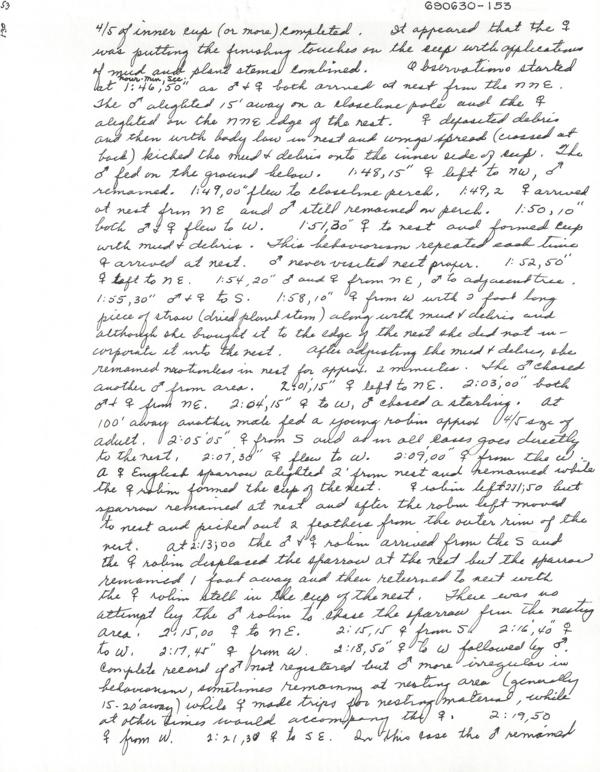 690630-153
4/5 of inner cup (or more) completed. It appeared that the ♀
was putting the finishing touches on the cup with applications
of mud and plant stems combined. Observations started
hour-min, sec.
at 1:46,50" as ♂ + ♀ both arrived at nest from the NNE.
The ♂ alighted 15' away on a closeline pole and the ♀
alighted on the NNE edge of the nest. ♀ deposited debris
and then with body low in nest and wings spread (crossed at
back) kicked the mud & debris onto the inner side of cup. The
♂ fed on the ground below. 1:48,15" ♀ left to NW, ♂
remained. 1:49,00" flew to closeline perch. 1:49,2 ♀ arrived
at nest from NE and ♂ still remained on perch. 1:50,10"
both ♂ + ♀ flew to W. 1:51,30" ♀ to nest and formed cup
with mud & debris. This behaviorism repeated each time
♀ arrived at nest. ♂ never visited nest proper. 1:52,50"
♀ left to NE. 1:54,20" ♂ and ♀ from NE, ♂ to adjacent tree.
1:55,30" ♂ + ♀ to S. 1:58,10" ♀ from W with 2 foot long
piece of straw (dried plant stem) along with mud & debris and
although she brought it to the edge of the nest she did not in-
corporate it into the nest. After adjusting the mud & debris, she
remained motionless in nest for approx. 2 minutes. The ♂ chased
another ♂ from area. 2:01,15" ♀ left to NE. 2:03,00" both
♂ + ♀ from NE. 2:04,15" ♀ to W, ♂ chased a starling. At
100' away another male fed a young robin approx 4/5 size of
adult. 2:05 05" ♀ from S and as in all cases goes directly
to the nest. 2:07,30" ♀ flew to W. 2:09,00" ♀ from the W.
A ♀ English sparrow alighted 2' from nest and remained while
the ♀ robin formed the cup of the nest. ♀ robin left 2:11,50 but
sparrow remained at nest and after the robin left moved
to nest and picked out 2 feathers from the outer rim of the
nest. At 2:13,00 the ♂ + ♀ robin arrived from the S and
the ♀ robin displaced the sparrow at the nest but the sparrow
remained 1 foot away and then returned to nest with
the ♀ robin still in the cup of the nest. There was no
attempt by the ♂ robin to chase the sparrow from the nesting
area. 2:15,00 ♀ to NE. 2:15,15 ♀ from S. 2:16,40" ♀
to W. 2:17,45" ♀ from W. 2:18,50" ♀ to W followed by ♂.
Complete record of ♂ not registered but ♂ more irregular in
behaviorism, sometimes remaining at nesting area (generally
15-20' away) while ♀ made trips for nesting material, while
at other times would accompany the ♀. 2:19,50
♀ from W. 2:21,30 ♀ to SE. In this case the ♂ remained